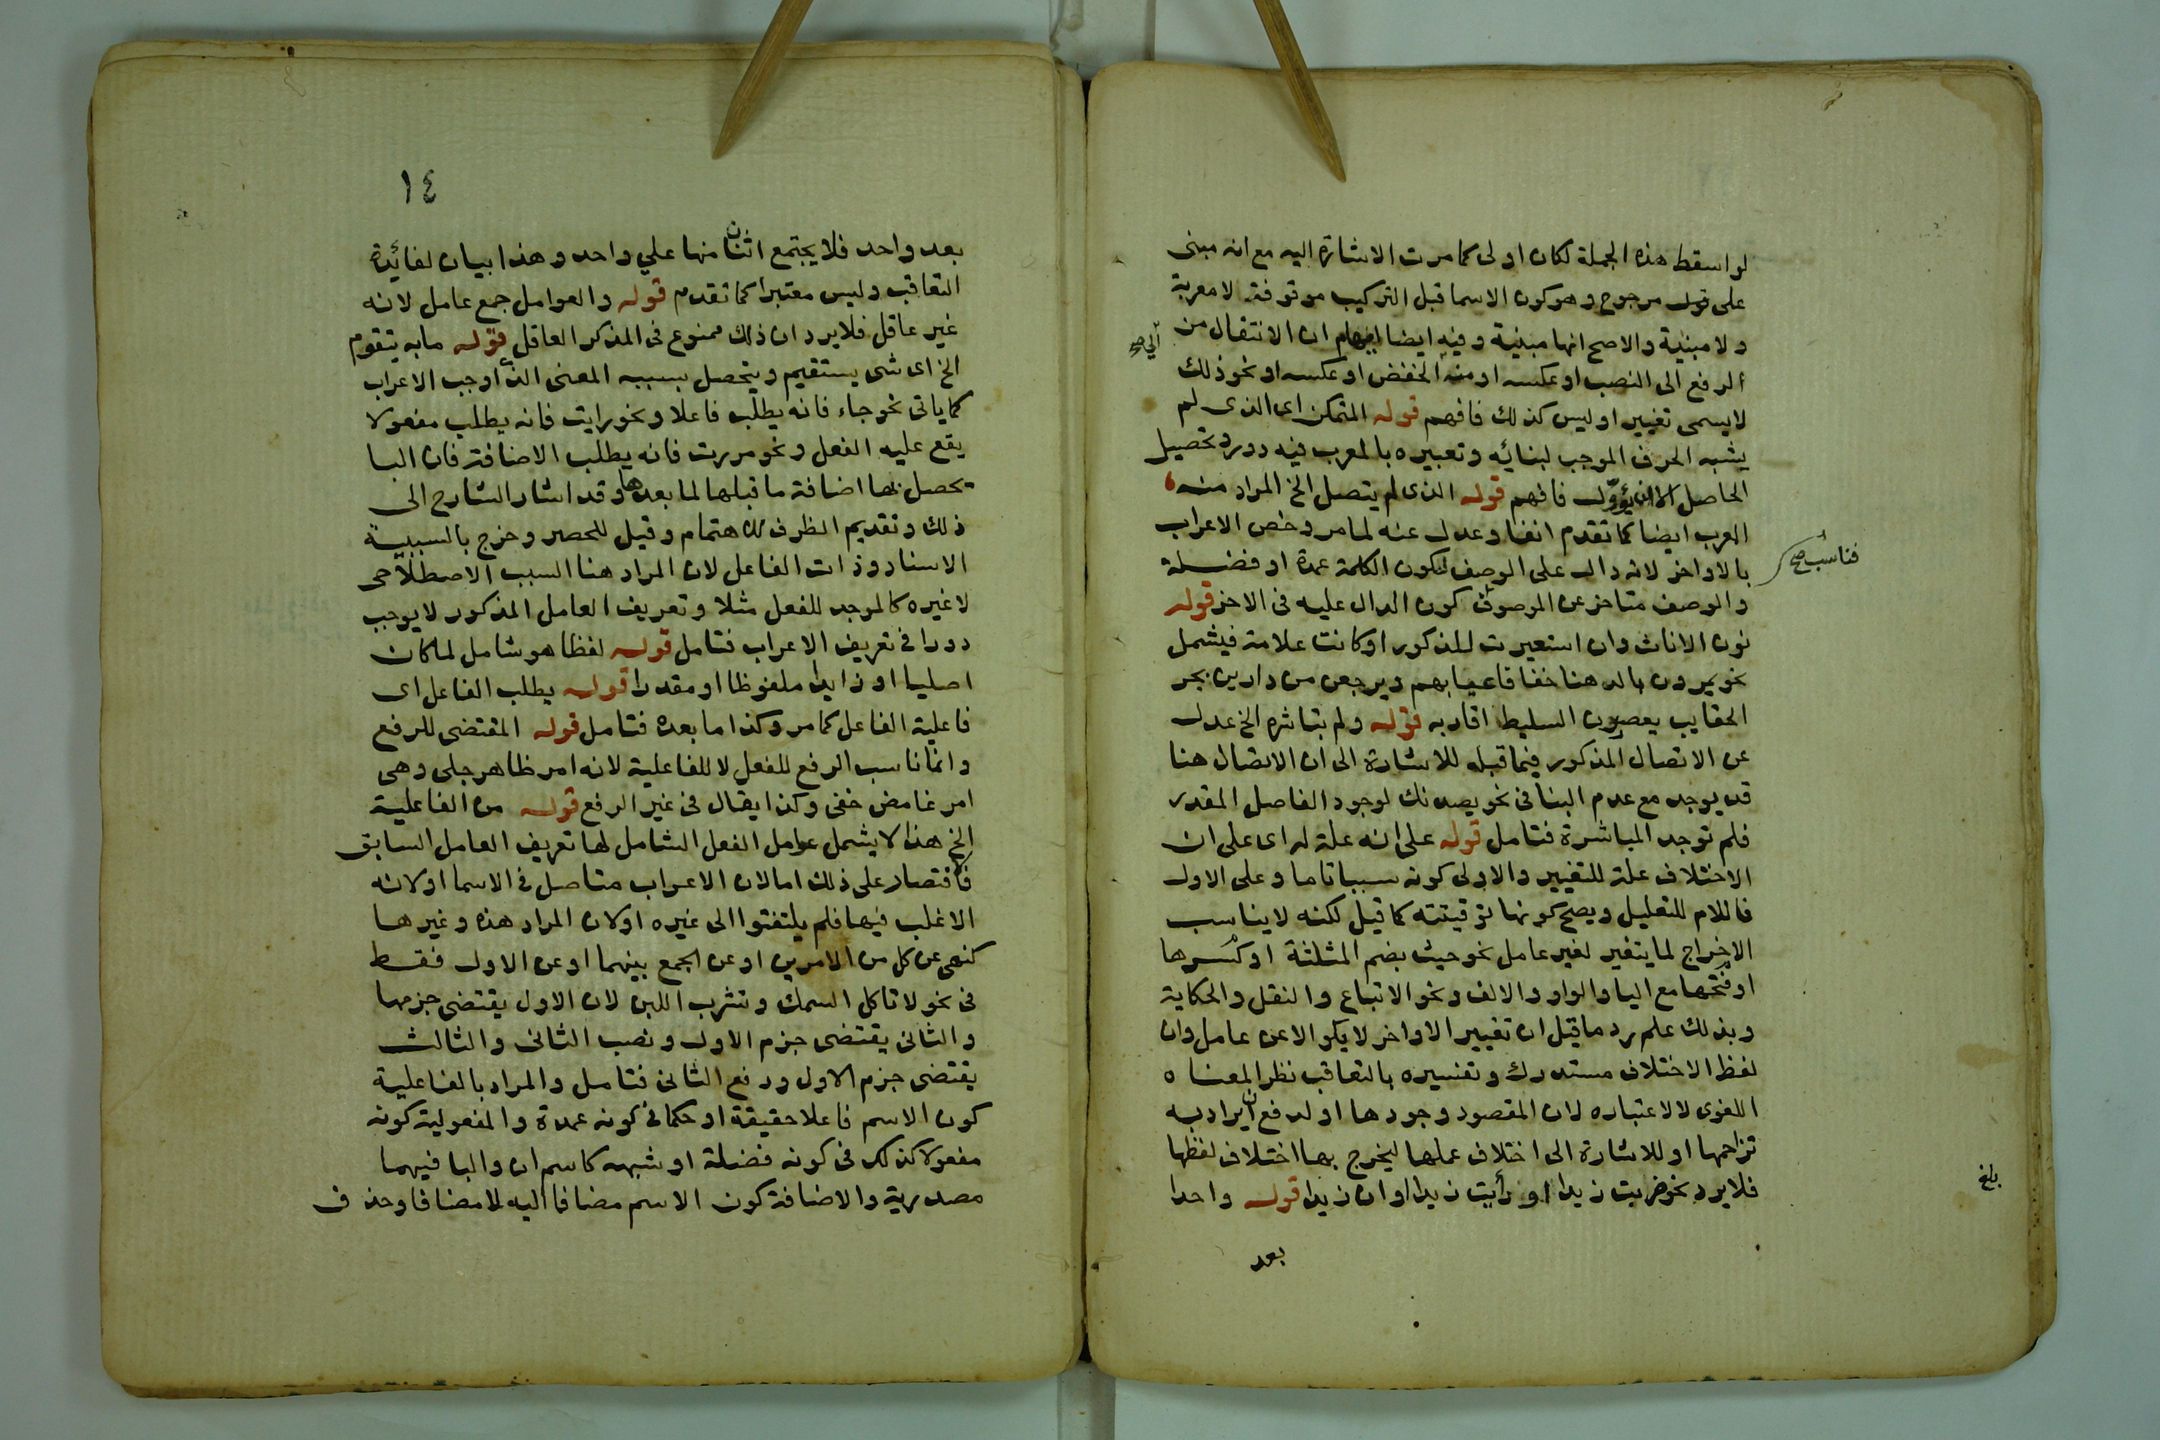 لو اسقط هذه الجملة لكان اولى كما مرت الاشارة اليه مع انه مبنى
على قول مرجوح وهو كون الاسما قبل التركيب موقوفة لا معربة
ولا مبنية والاصح انها مبنية وفيه ايضا ايهام ان الانتقال من
الرفع الى النصب او عكسه او منه الخفض او عكسه او نحو ذلك
الى صح
لا يسمى تغيير او ليس كذلك فافهم قوله المتمكن اى الذى لم
يشبه الحرف الموجب لبنائه وتعبيره بالمعرب فيه دور وتحصيل
الحاصل الا ان يؤوّل فافهم قوله الذى لم يتصل الخ المراد منه
المعرب ايضا كما تقدم انفا وعدل عنه لما مر وخص الاعراب
بالاواخر لانه دال على الوصف لكون الكلمة عمدة او فضلة
فناسب صح
والوصف متاخر عن الموصوف كون الدال عليه فى الاخر قوله
نون الاناث وان استعيرت للذكور او كانت علامة فيشمل
نحو يمرون بالدهنا خفافا عيابهم ويرجعن من دارين بجر
الحقايب يعصرون السليط اقاربه قوله ولم تباشره الخ عدل
عن الاتصال المذكور فيما قبله للاشارة الى ان الاتصال هنا
قد يوجد مع عدم البنا فى نحو يصدنك لوجود الفاصل المقدر
فلم توجد المباشرة فتامل قوله على انه علة له اى على ان
الاختلاف علة للتغيير والاولى كونه سببا تاما وعلى الاول
فاللام للتعليل ويصح كونها توقيتيته كما قيل لكنه لا يناسب
الاخراج لما يتغير لغير عامل نحو حيث بضم المثلثة او كسرها
او فتحها مع اليا والواو والالف ونحو الاتباع والنقل والحكاية
وبذلك علم رد ما قيل ان تغيير الاواخر لا يكو الا عن عامل وان
لفظ الاختلاف مستدرك وتفسيره بالتعاقب نظر المعناه
اللغوى لا لاعتباره لان المقصود وجودها او لدفع ان يراد به
تزاحمها او للاشارة الى اختلاف عملها ليخرج بها اختلاف لفظها
فلا يرد نحو ضربت زيدا او رأيت زيدا او ان زيدا قوله واحدا
بلغ
بعد
١٤
بعد واحد فلا يجتمع اثنان منها علي واحد وهذا بيان لفائدة
التعاقب وليس معتبرا كما تقدم قوله والعوامل جمع عامل لانه
غير عاقل فلا يرد ان ذلك ممنوع فى المذكر العاقل قوله ما به يتقوم
الخ اى شى يستقيم ويتحصل بسببه المعنى الذى اوجب الاعراب
كما ياتى نحو جاء فانه يطلب فاعلا ونحو رايت فانه يطلب مفعولا
يقع عليه الفعل ونحو مررت فانه يطلب الاضافة فان البا
يحصل بها اضافة ما قبلها لما بعدها وقد اشار الشارح الى
ذلك وتقديم الظرف للاهتمام وقيل للحصر وخرج بالسببية
الاسناد وذات الفاعل لان المراد هنا السبب الاصطلاحى
لا غيره كالموجد للفعل مثلا وتعريف العامل المذكور لا يوجب
دورا فى تعريف الاعراب فتامل قوله لفظا هو شامل لما كان
اصليا او زايدا ملفوظا او مقدرا قوله يطلب الفاعل اى
فاعلية الفاعل كما مر وكذا ما بعده فتامل قوله المقتضى للرفع
وانما ناسب الرفع للفعل لا للفاعلية لانه امر ظاهر جلى وهى
امر غامض خفى وكذا يقال فى غير الرفع قوله من الفاعلية
الخ هذا لا يشمل عوامل الفعل الشامل لها تعريف العامل السابق
فالاقتصار على ذلك اما لان الاعراب متاصل فى الاسما او لانه
الاغلب فيها فلم يلتفتوا الى غيره او لان المراد هذه وغيرها
كنهى عن كل من الامرين او عن الجمع بينهما او عن الاول فقط
فى نحو لا تاكل السمك وتشرب اللبن لان الاول يقتضى جزمها
والثانى يقتضى جزم الاول ونصب الثانى والثالث
يقتضى جزم الاول ورفع الثانى فتامل والمراد بالفاعلية
كون الاسم فاعلا حقيقة او حكما فى كونه عمدة والمفعولية كونه
مفعولا كذلك فى كونه فضلة او شبهه كاسم ان واليا فيهما
مصدرية والاضافة كون الاسم مضافا اليه لا مضافا وحذف